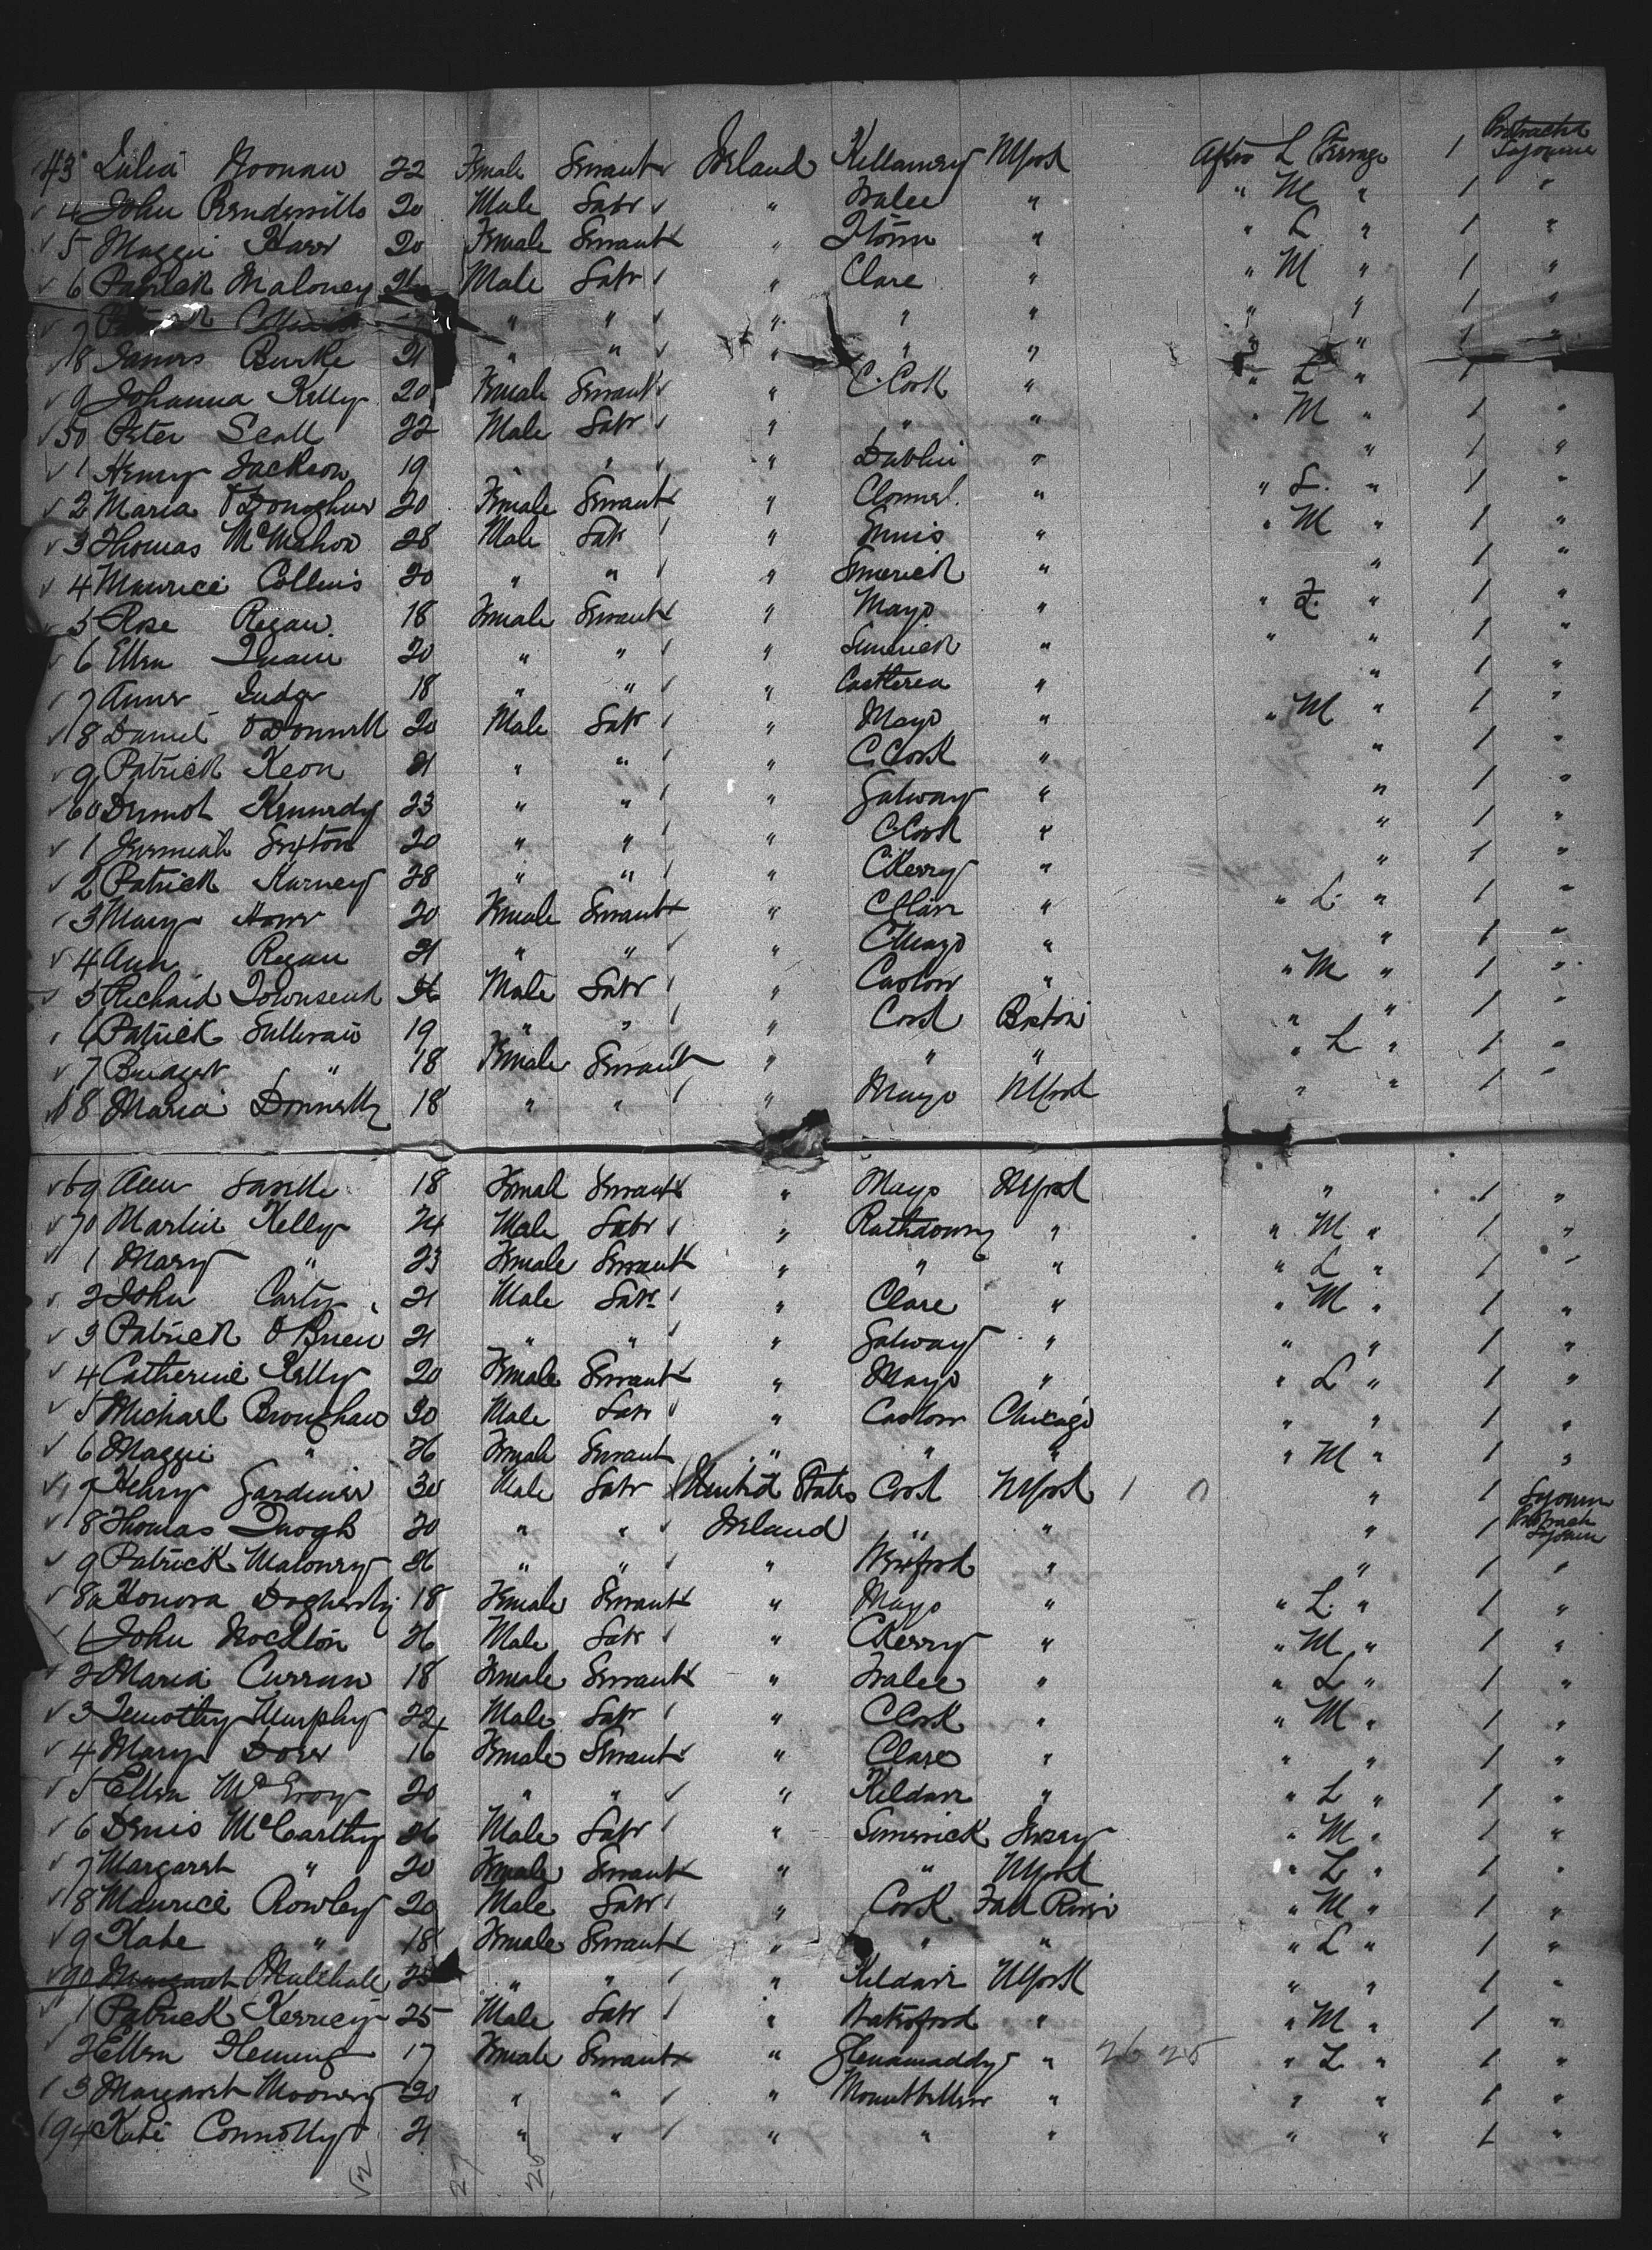 43 Julia Noonan 22 Female Servant Ireland Killarney NYork After L Steerage 1 Protracted Sojourn
4 John Prendevills 20 Male Labr " Tralee " " M " 1 "
5 Maggie Harr 20 Female Servant " " " L " 1 "
6 Patrick Maloney 26 Male Labr " Clare " " M " 1 "
7 " " " " " " " 1 "
8 James Burke 21 " " " " " " " 1 "
9 Johanna Kelly 20 Female Servant " C. Cork " " L " 1
50 Peter Scall 22 Male Labr " " " " M " 1 "
1 Henry Jackson 19 " " " Dublin " " 1 "
2 Maria ODonoghue 20 Female Servant " Clonmel " " L. " 1 "
3 Thomas McMahon 28 Male Labr " Ennis " " M " 1 "
4 Maurice Collins 20 " " " Limerick " " 1 "
5 Rose Regan 18 Female Servant " Mayo " " L. " 1 "
6 Ellen Quain 20 " " " Limerick " " " 1 "
7 Anne 18 " " " Castlerea " " 1 "
8 Daniel ODonnell 20 Male Labr " Mayo " " M " 1 "
9 Patrick Keon 21 " " " C Cork " " 1 "
60 Dermot Kennedy 23 " " " Galway " " 1 "
1 Jeremiah Sexton 20 " " " C Cork " " 1 "
2 Patrick Kurney 28 " " " C Kerry " " 1 "
3 Mary 20 Female Servant " C Clare " " L " 1 "
4 Ann Regan 21 " " " C Mayo " " 1 "
5 Richard Townsend Male Labr " Carlow " " M " 1 "
6 Patrick Sullivan 19 " " " Cork Boston " " 1 "
7 Bridget " 18 Female Servant " " " " L " 1 "
68 Maria Donnelly 18 " " " Mayo NYork " " 1 "
69 Ann Lavelle 18 Female Servant " Mayo NYork " 1 "
70 Martin Kelly 24 Male Labr " Rathdowny " " M " 1 "
1 Mary " 23 Female Servant " " " " L " 1 "
2 John Carty 21 Male Labr " Clare " " M " 1 "
3 Patrick OBrien 21 " " " Galway " " " 1 "
4 Catherine Kelly 20 Female Servant " Mayo " " L " 1 "
5 Michael Broughan 30 Male Labr " Carlow Chicago " " 1 "
6 Maggie " 26 Female Servant " " " " M " 1 "
7 Henry Gardiner 30 Male Labr United States Cork NYork 1 0 " 1 Sojourn
8 Thomas Quogh 20 " " Ireland " " " 1 Protract Sojourn
9 Patrick Maloney 26 " " " Wexford " " 1 "
80 Honora Dogherty 18 Female Servant " Mayo " " L. " 1 "
1 John Nocklon 26 Male Labr " C Kerry " " M " 1 "
2 Maria Curran 18 Female Servant " Tralee " " L " 1 "
3 Timothy Murphy 22 Male Labr " C Cork " " M " 1 "
4 Mary 16 Female Servant " Clare " " " 1 "
5 Ellen McEvoy 20 " " " Kildare " " L " 1 "
6 Denis McCarthy 26 Male Labr " Limerick Jersey " M " 1 "
7 Margaret " 20 Female Servant " " NYork " L " 1 "
8 Maurice Crowley 20 Male Labr " Cork Fall River " M " 1 "
9 Kate " 18 Female Servant " " " " L " 1 "
90 Margaret Mulchall 25 " " " Kildare NYork " " 1 "
1 Patrick Kerricy 25 Male Labr " Waterford " " M " 1 "
2 Ellen Fleming 17 Female Servant " Glenamaddy " 26 25 " L " 1 "
3 Margaret Mooney 20 " " " Mountbellew " " " 1 "
94 Kate Connolly 21 " " " " " " " 1 "